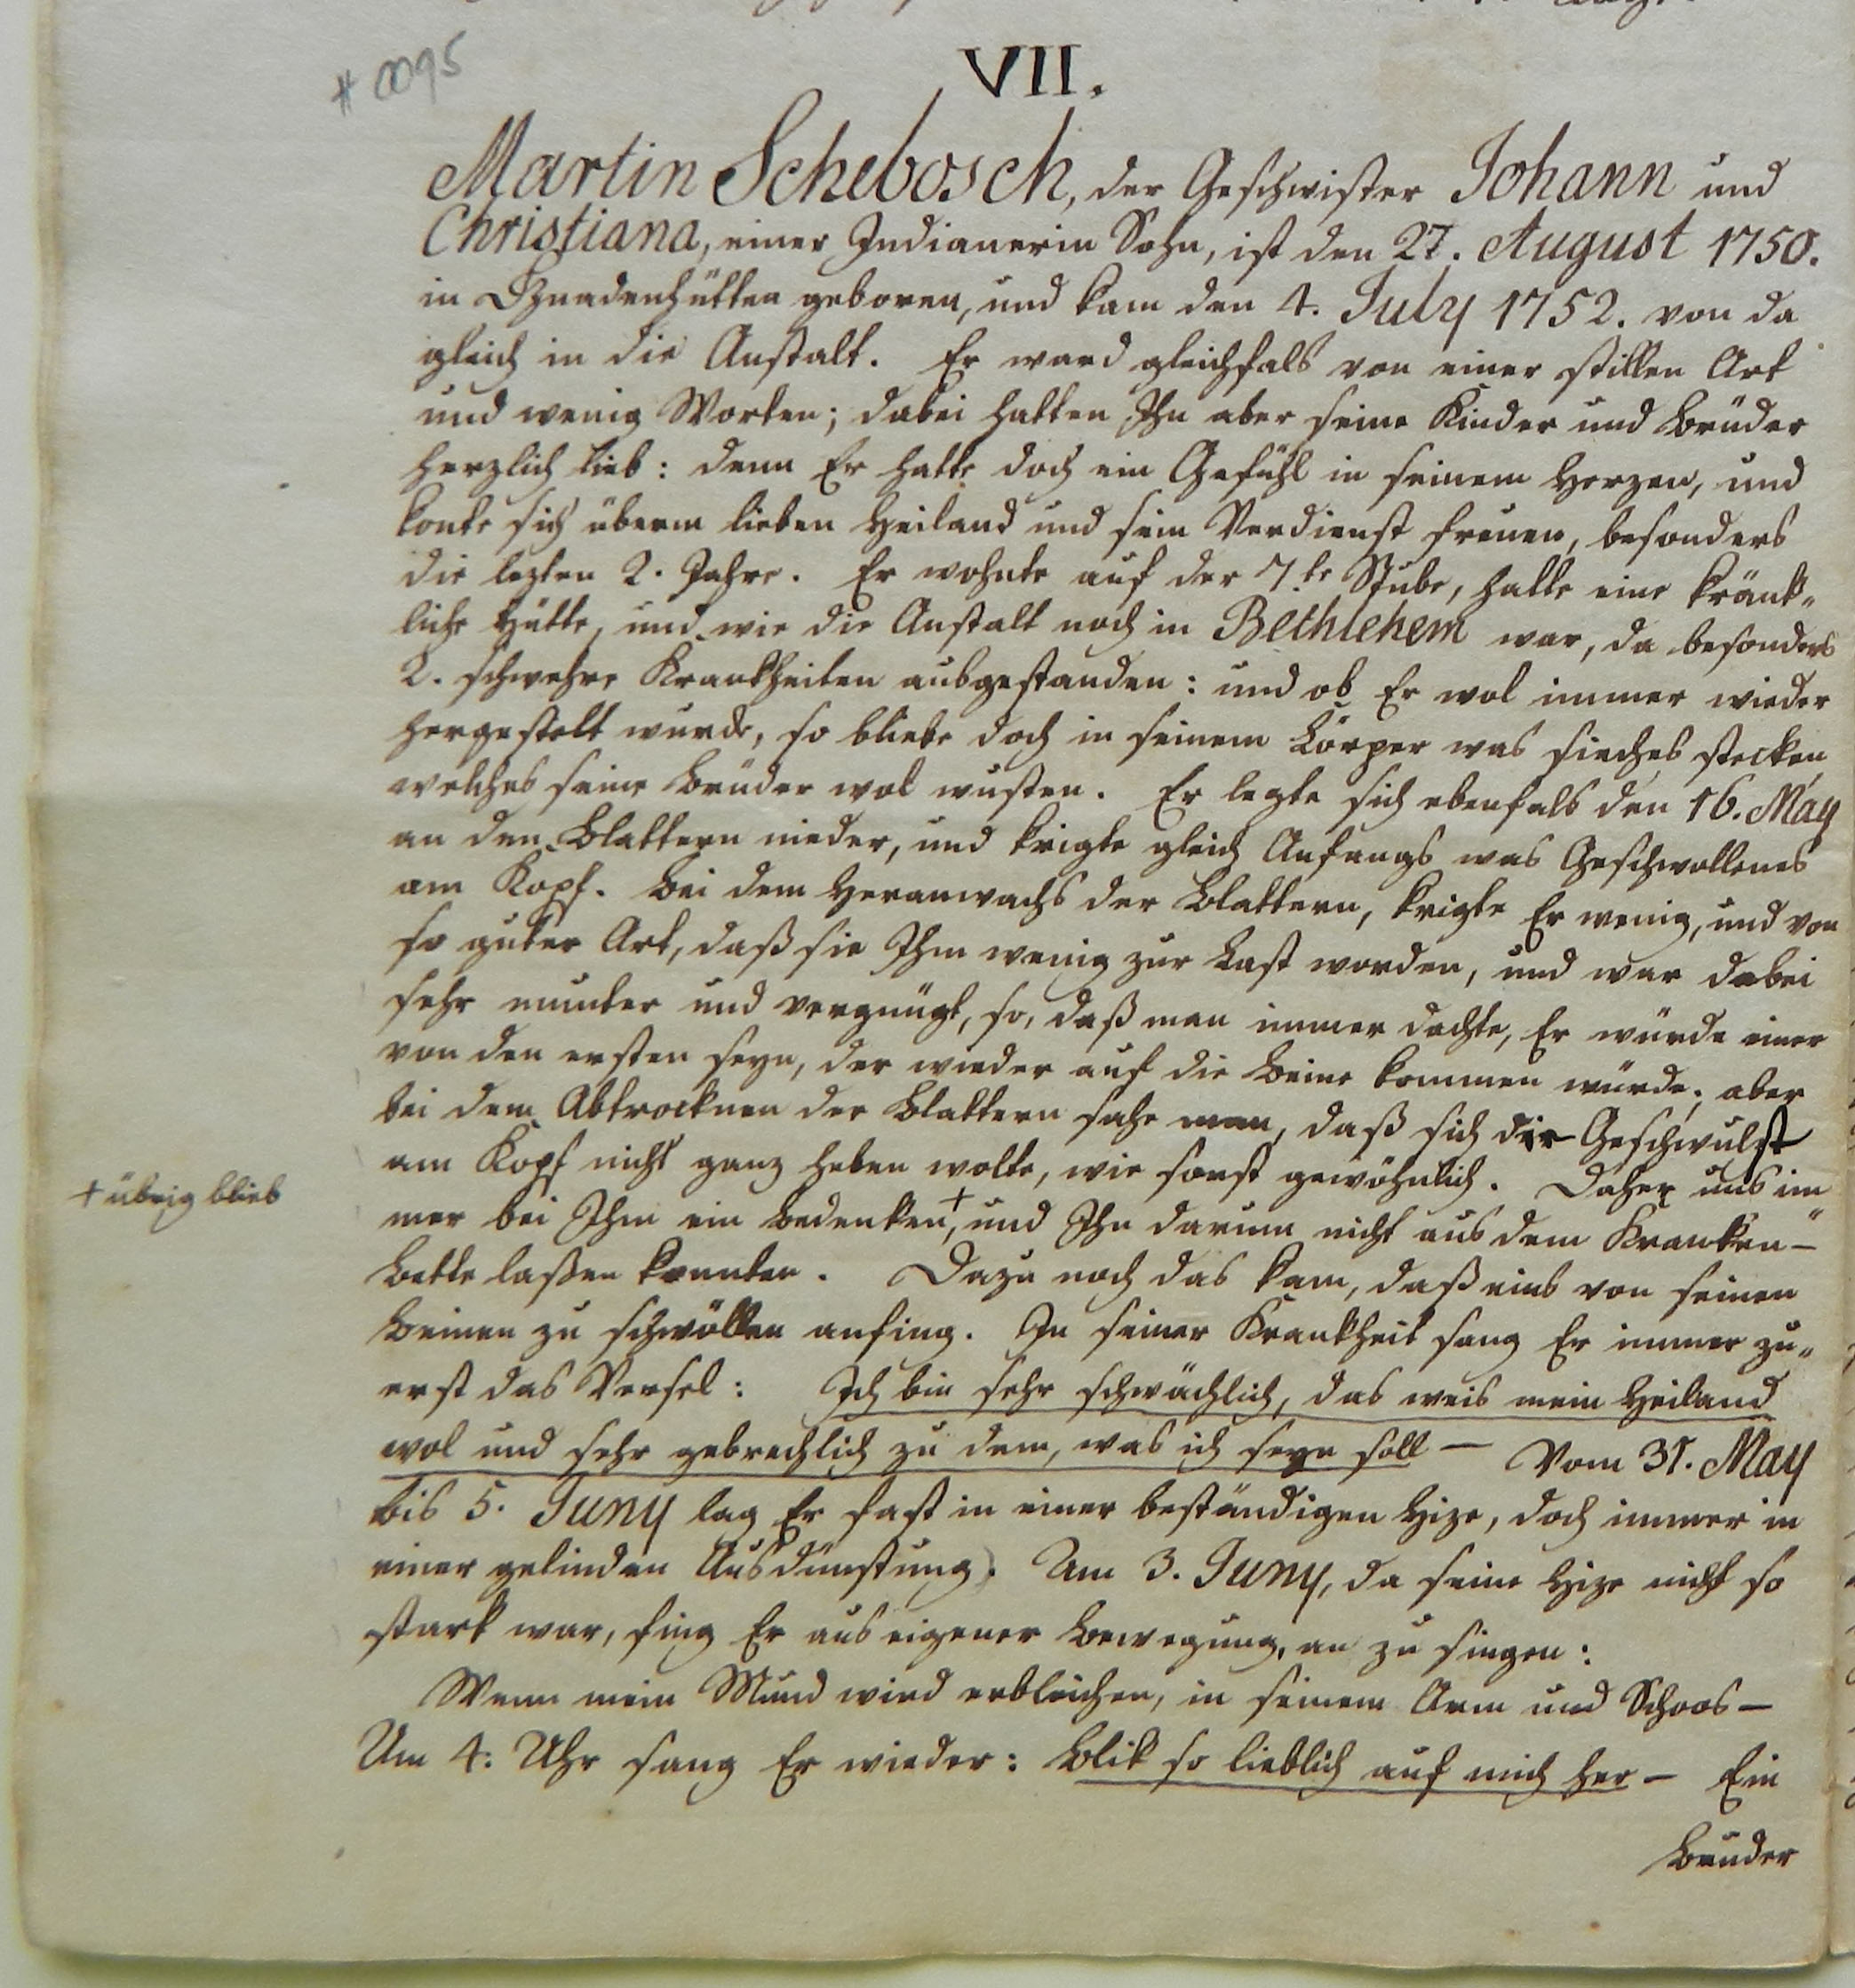 # 0095
VII.
Martin Schebosch, der Geschwister Johann und
Christiana, einer Indianerin Sohn, ist den 27. August 1750.
in Gnadenhütten geboren, und kam den 4. July 1752. von da
gleich in die Anstalt. Er ward gleichfals von einer stillen Art
und wenig Worten; dabei hatten Ihn aber seine Kinder und Brüder
herzlich lieb: denn Er hatte doch ein Gefühl in seinem Herzen, und
konte sich überm lieben Heiland und sein Verdienst freuen, besonders
die lezten 2. Jahre. Er wohnte auf der 7.te Stube, hatte eine kränk„
liche Hütte, und wie die Anstalt noch in Bethlehem war, da besonders
2. schwehre Krankheiten ausgestanden: und ob Er wol immer wieder
hergestelt wurde, so bliebe doch in seinem Cörper was sieches stecken,
welches seine Brüder wol wusten. Er legte sich ebenfals den 16. May
an den Blattern nieder, und krigte gleich Anfangs was Geschwollenes
am Kopf. Bei dem Heranwachs der Blattern, krigte Er wenig, und von
so guter Art, daß sie Ihm wenig zur Last worden, und war dabei
sehr munter und vergnügt, so, daß man immer dachte, Er würde einer
von den ersten seyn, der wieder auf die Beine kommen würde; aber
bei dem Abtrocknen der Blattern sahe man, daß sich die Geschwulst
am Kopf nicht ganz heben wolte, wie sonst gewöhnlich. Daher uns im„
+ übrig blieb
mer bei Ihm ein Bedenken+, und Ihn darum nicht aus dem Kranken-
Bette laßen konnten. Dazu noch das kam, daß eins von seinen
Beinen zu schwöllen anfing. In seiner Krankheit sang Er immer zu„
erst das Versel: Ich bin sehr schwächlich, das weis mein Heiland
wol und sehr gebrechlich zu dem, was ich seyn soll — Vom 31. May
bis 5. Juny lag Er fast in einer beständigen Hize, doch immer in
einer gelinden Ausdünstung. Am 3. Juny, da seine Hize nicht so
stark war, fing Er aus eigener Bewegung, an zu singen:
Wenn mein Mund wird erbleichen, in seinem Arm und Schoos —
Um 4. Uhr sang Er wieder: Blik so lieblich auf mich her — Ein
Bruder